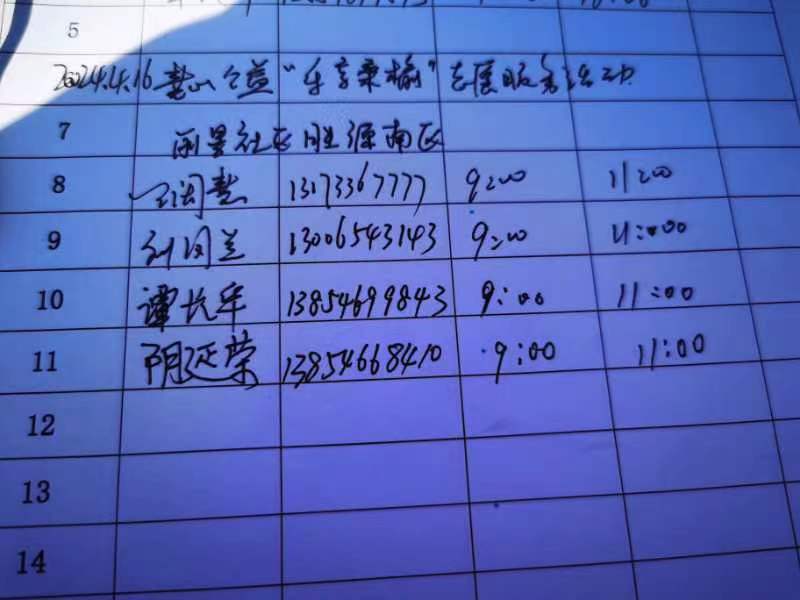 5
2024.4.16 慧心公益“乐享桑榆”志愿服务活动
7 丽景社区胜源南区
8 闫慧 13173367777 9:00 11:00
9 刘同兰 1306543143 9:00 11:00
10 谭长军 13854699843 9:00 11:00
11 阴延荣 13854668410 9:00 11:00
12
13
14